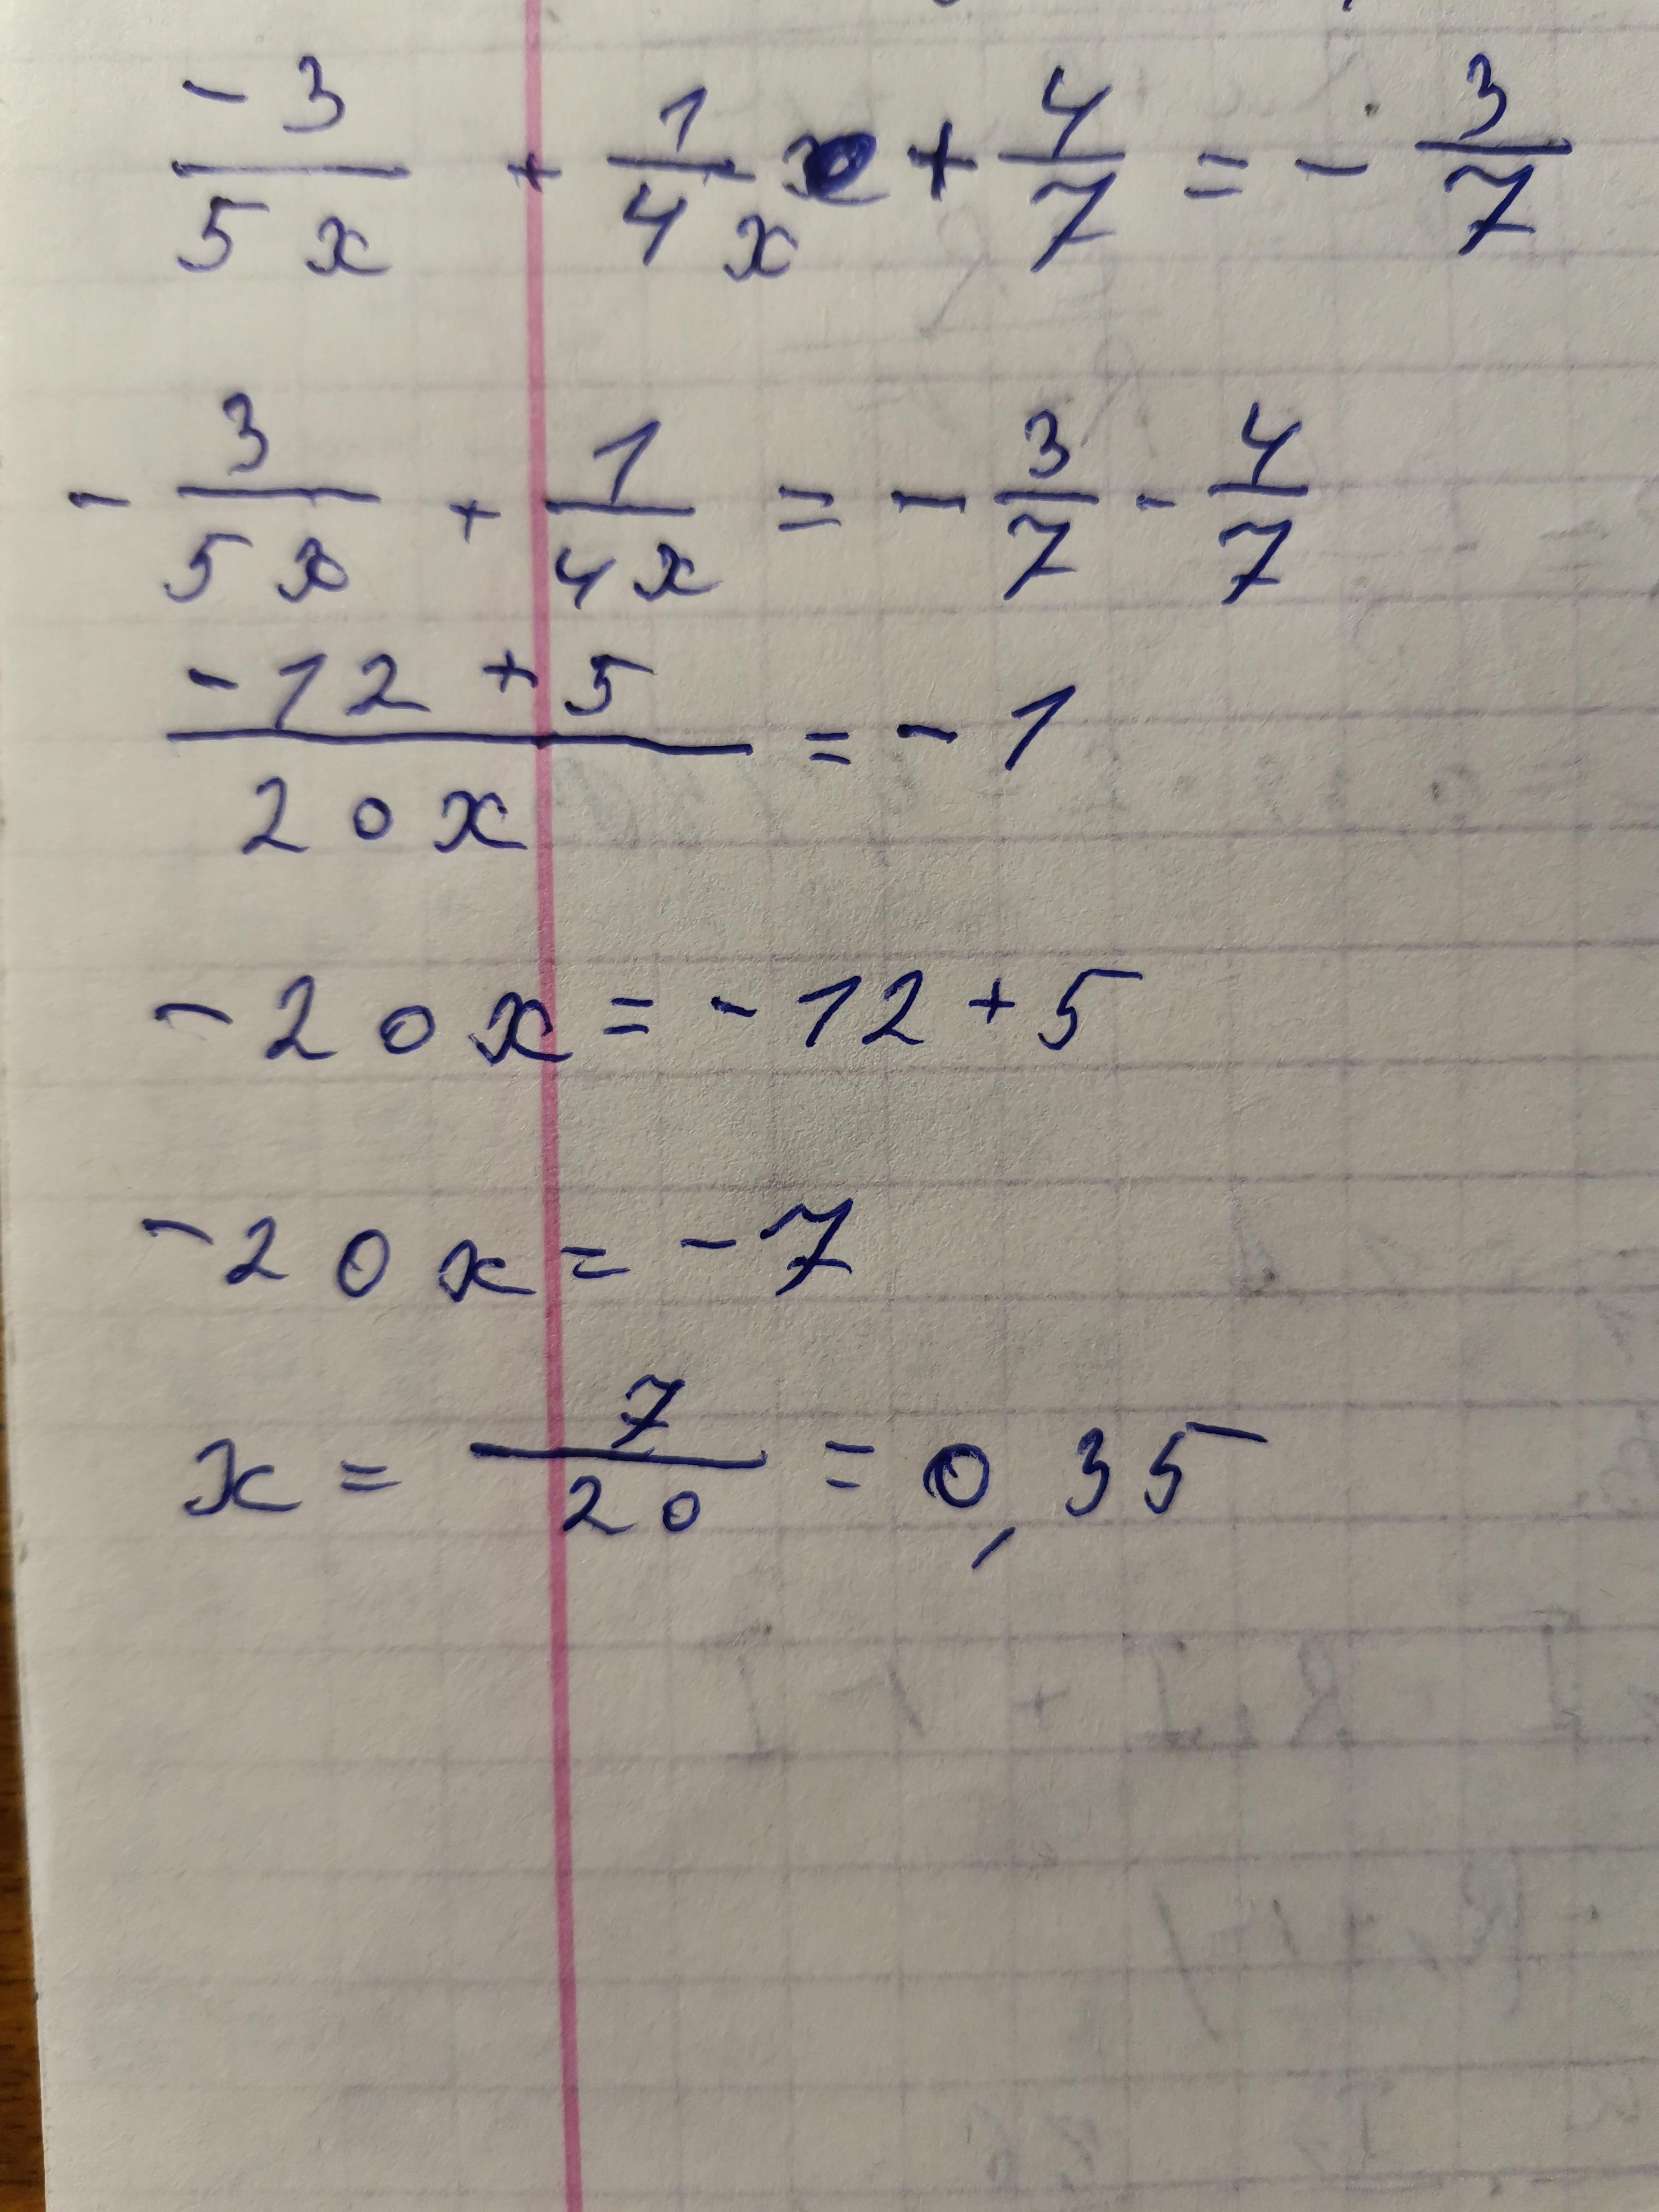 -3/5x + 1/4x + 4/7 = - 3/7
- 3/5x + 1/4x = - 3/7 - 4/7
-12 + 5/20x = - 1
-20x = -12 + 5
-20x = -7
x = 7/20 = 0,35